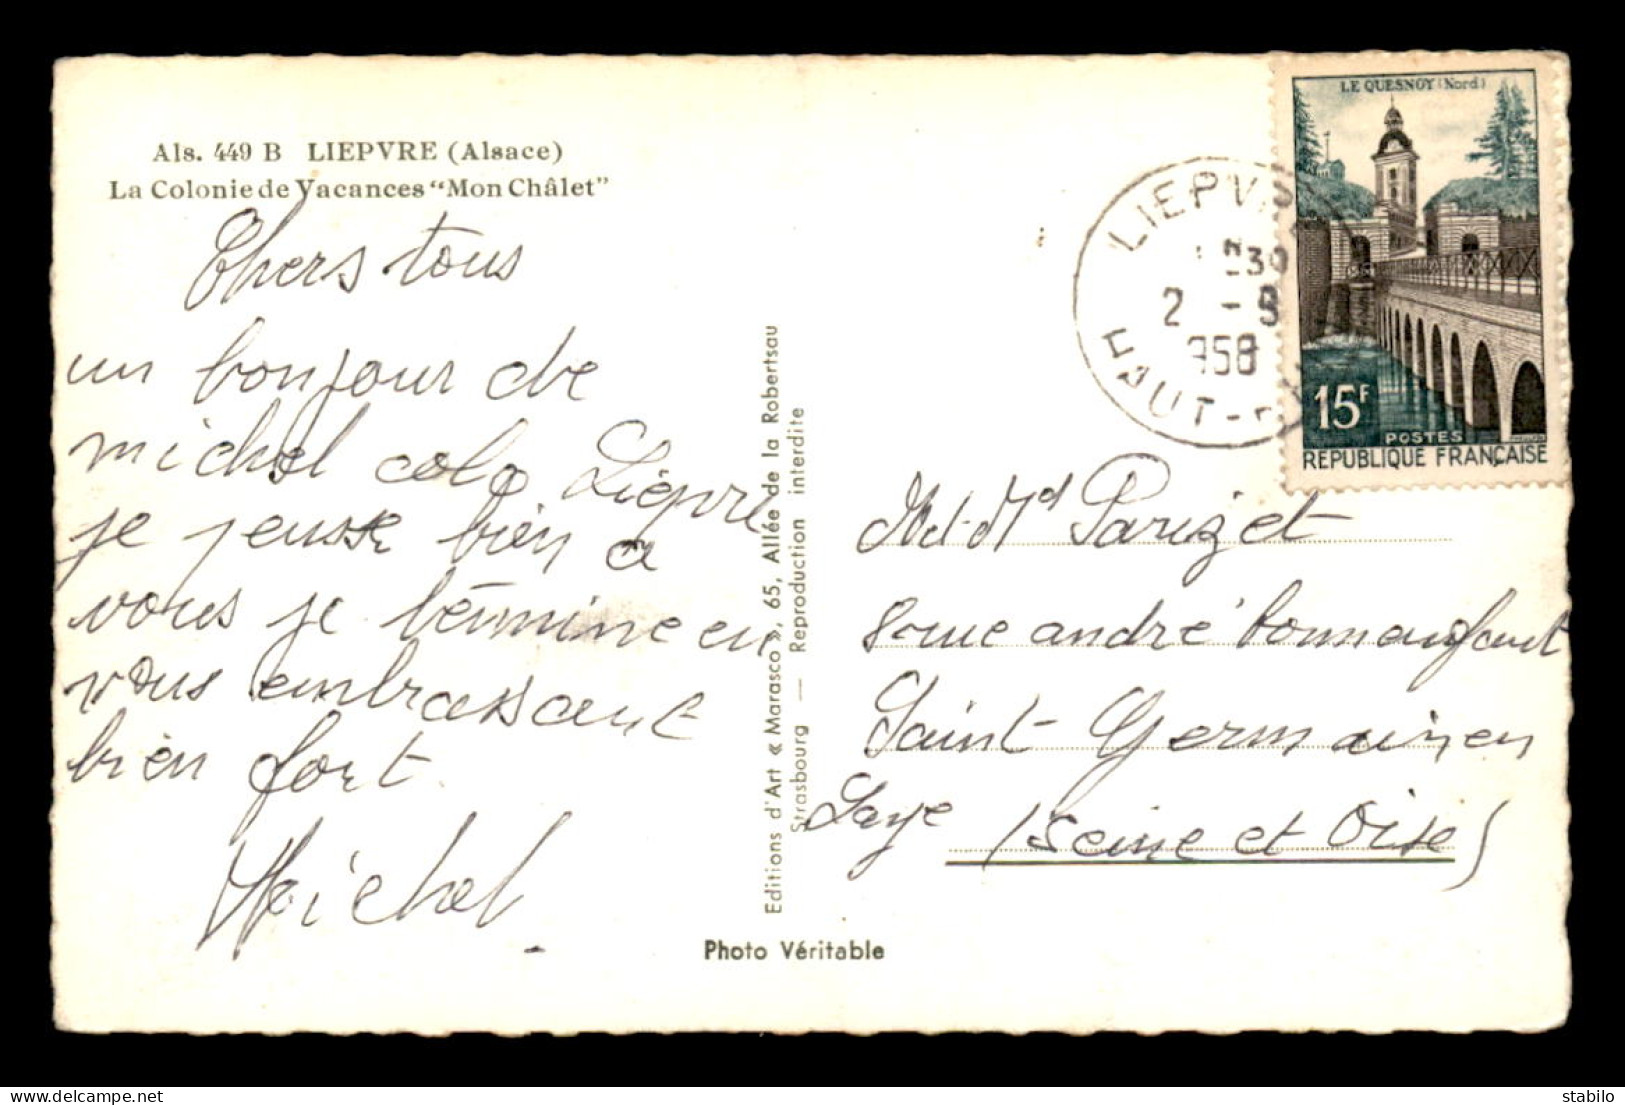 Als. 449 B LIEPVRE (Alsace)
La Colonie de Vacances "Mon Châlet"
Chers tous
un bonjour de
michel colo Lièpvre
je pensse bien a
vous je términe en
vous embrassant
bien fort.
Michel
Editions d'Art « Marasco », 65, Allée de la Robertsau
Strasbourg — Reproduction interdite
Photo Véritable
LE QUESNOY (Nord)
15F
POSTES
REPUBLIQUE FRANÇAISE
LIEPVRE
2 - 9
958
HAUT-
Met Md Parizet
andré bonnenfant
Saint Germain en
Laye (Seine et Oise)
delcampe.net
serbenilo